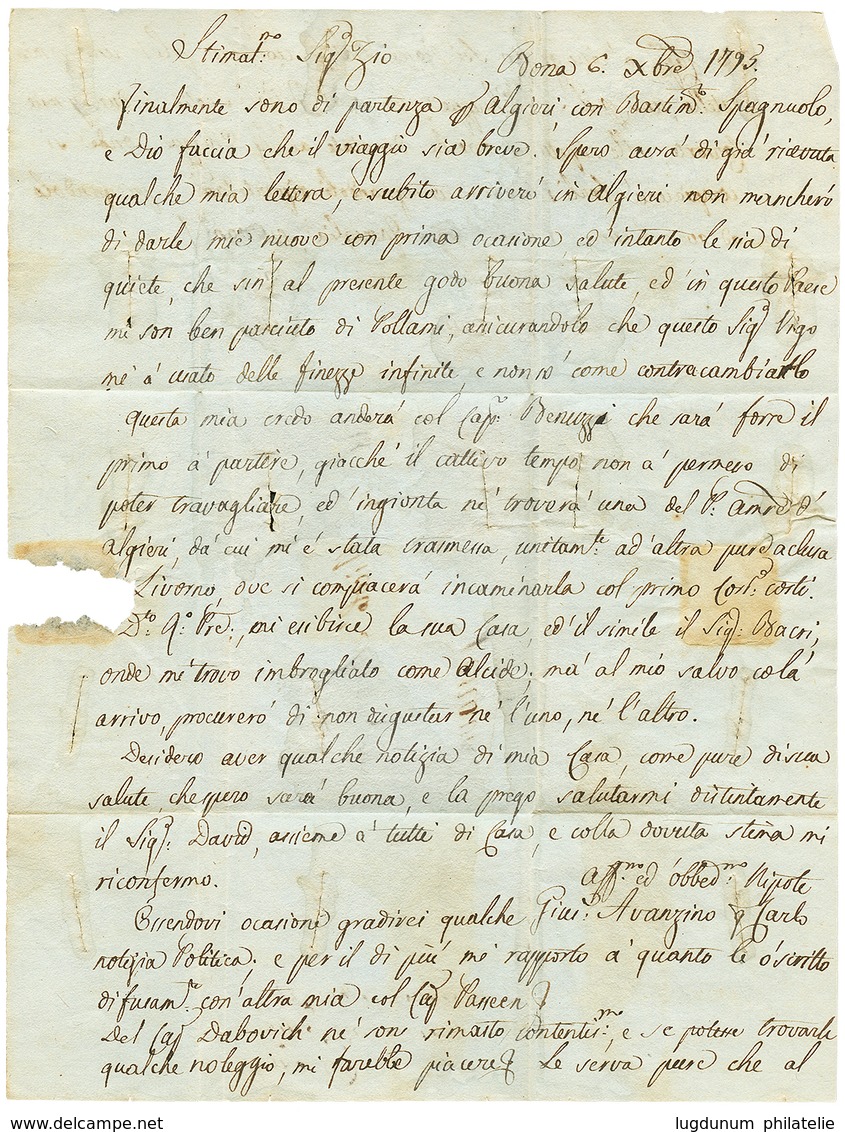 Stimat.mo Sig.r Zio Bona 6. Xbre 1795.
finalmente sono di partenza p Algieri con Bastim.to Spagnuolo,
e Dio faccia che il viaggio sia breve. Spero avrà di già ricevuta
qualche mia lettera, e subito arriverò in Algieri non mancherò
di darle mie nuove con prima ocasione, ed' intanto le sia di
quiete, che sin' al presente godo buona salute, ed' in questo Paese
mi son ben pasciuto di Pollami, assicurandolo che questo Sig.r Vigo
mé à usato delle finezze infinite, e non sò come contracambiarllo
Questa mia credo anderà col Cap.n Benuzzi che sarà forse il
primo à partire, giacché il cattivo tempo non à permesso di
poter travagliare, ed' ingionta né troverà una del P. Amre d'
Algieri, da cui mi é stata trasmessa, unitam.te ad' altra pure aclusa
Livorno, ove si compiacerà incaminarla col primo Cor.e costì.
D.to A.o Pre:, mi esibisce la sua Casa, ed' il simile il Sig.r Bacri,
onde mi trovo imbrogliato come Alcide, mà al mio salvo colà
arrivo, procurerò di non disgustar né l'uno, né l'altro.
Desidero aver qualche notizia di mia Casa, come pure di sua
salute, che spero sarà buona, e la prego salutarmi distintamente
il Sig.r David, assieme à tutti di Casa, e colla dovuta stima mi
riconfermo. Aff.mo ed' obbed.mo Nipote
Essendovi ocasione gradirei qualche Gius.e Avanzino q Carlo
notizia Politica, e per il di più mé rapporto à quanto le ò scritto
difusam.te con' altra mia col Cap Passeen
Del Cap Dabovich né son rimasto contentis.mo, e se potesse trovarle
qualche noleggio, mi farebbe piacere Le serva pure che al
www.delcampe.net lugdunum philatelie